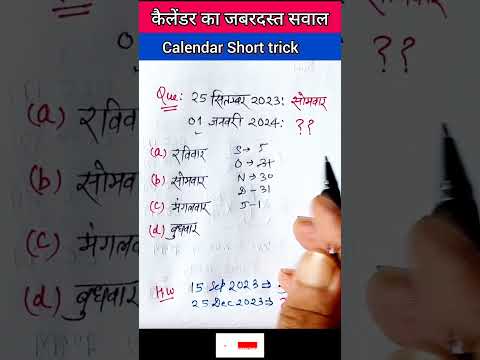 कैलेंडर का जबरदस्त सवाल
Calendar Short trick
Que: 25 सितम्बर 2023: सोमवार
01 जनवरी 2024: ??
(a) रविवार
(b) सोमवार
(c) मंगलवार
(d) बुधवार
S → 5
O → 31
N → 30
D - 31
J - 1
HW 15 Sep 2023 ⇒
25 Dec 2023 ⇒
??
(a) रविवार
(b) सोमवार
(c) मंगलवार
(d) बुधवार